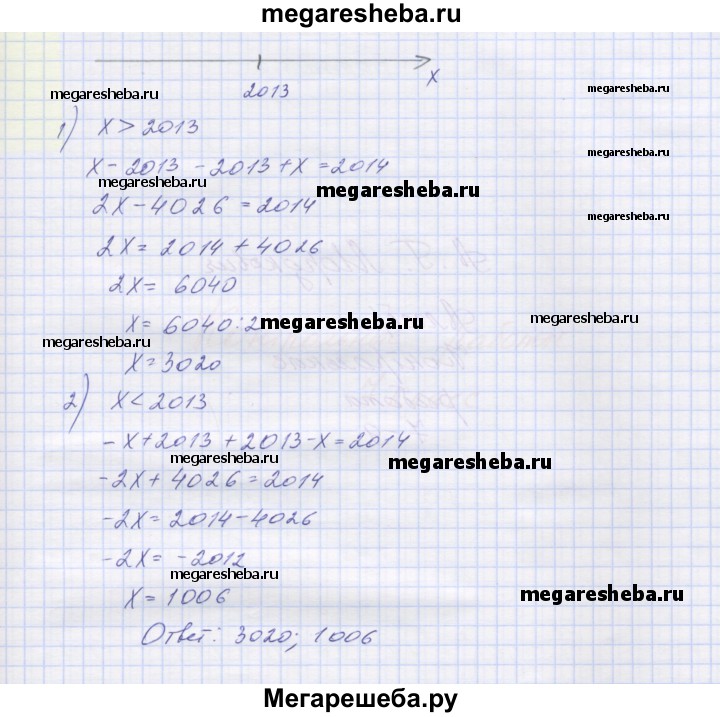 megaresheba.ru
x
2013
megaresheba.ru
megaresheba.ru
1) x > 2013
megaresheba.ru
x - 2013 - 2013 + x = 2014
megaresheba.ru
megaresheba.ru
2x - 4026 = 2014
megaresheba.ru
2x = 2014 + 4026
2x = 6040
x = 6040:2
megaresheba.ru
megaresheba.ru
x = 3020
2) x < 2013
-x + 2013 + 2013 - x = 2014
megaresheba.ru
megaresheba.ru
-2x + 4026 = 2014
-2x = 2014 - 4026
-2x = -2012
megaresheba.ru
x = 1006
megaresheba.ru
Ответ: 3020; 1006
Мегарешеба.ру